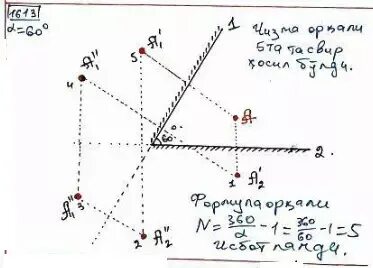 1613
α=60°
1
Чизма орқали
5та тасвир
ҳосил бўлди.
4 A₁'''
5 A₁'
A
60°
2.
1 A₂'
A₁'' 3
2 A₂''
Формула орқали
N = 360/α - 1 = 360/60 - 1 = 5
Исботланди.